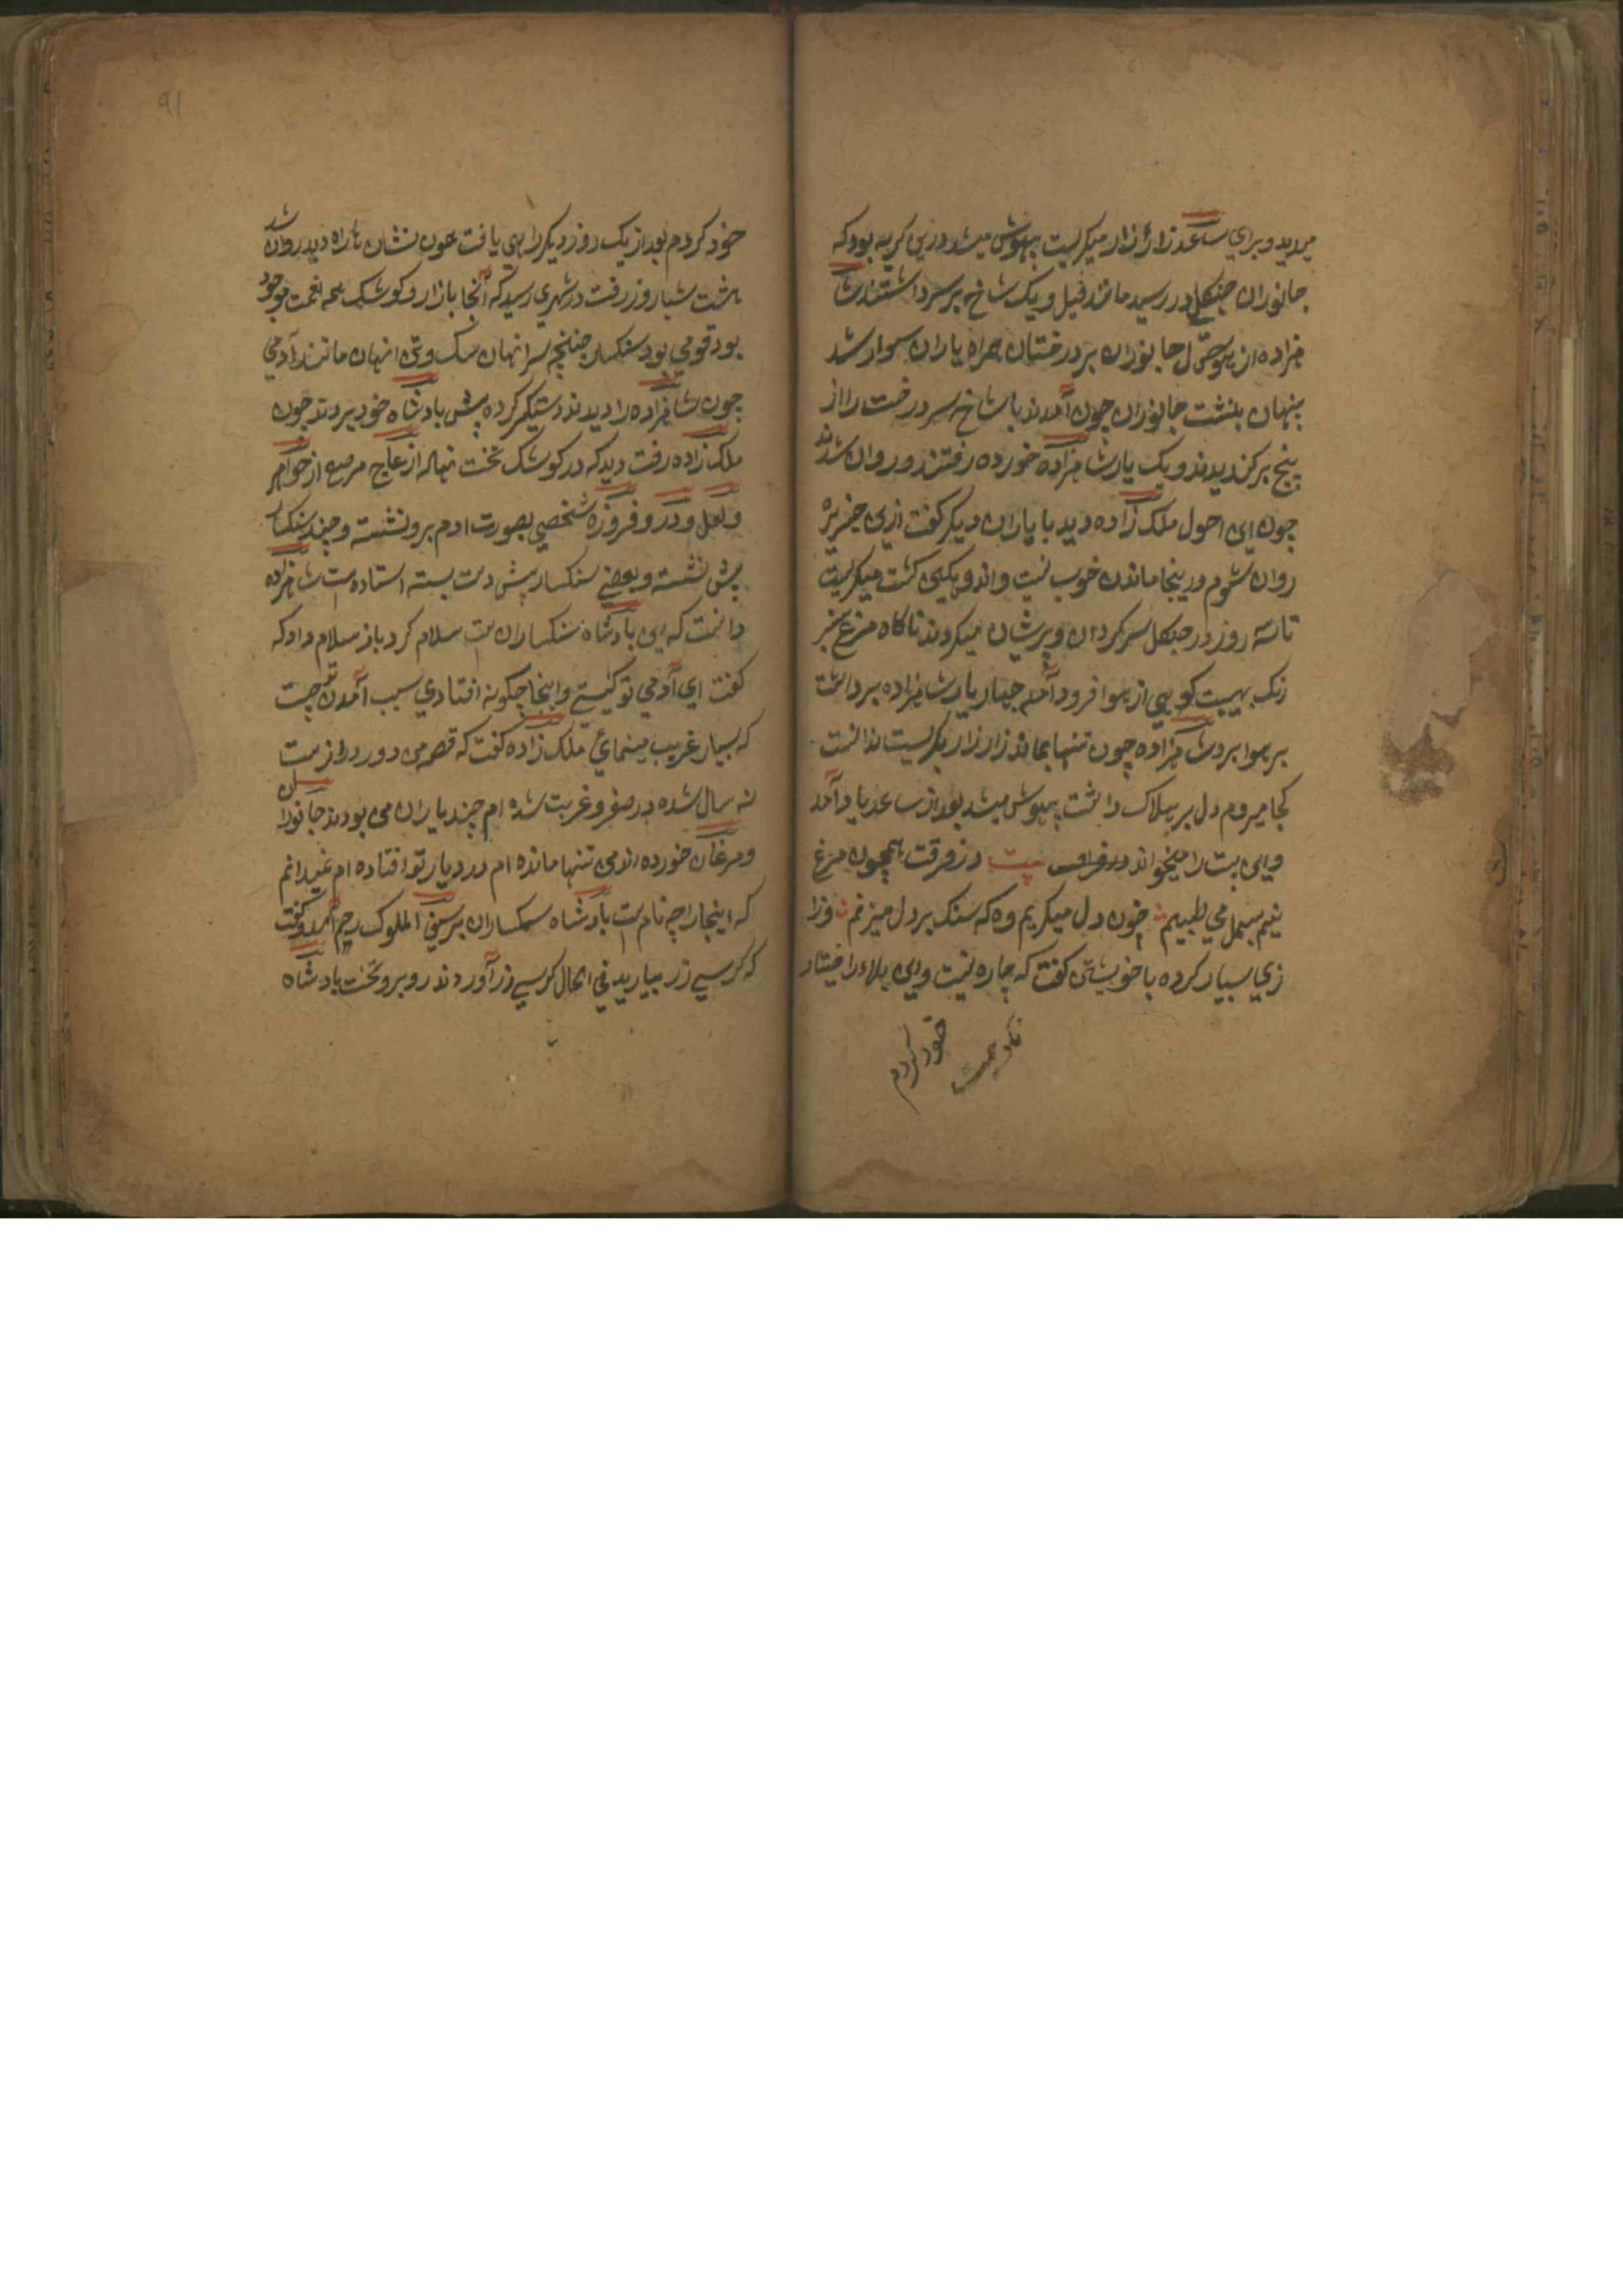 میدید و برای ساعد زار زار میگریست بیهوش میشد درین گریه بود که
جانوران جنگل در رسید مانند فیل و یک شاخ بر سر داشتند شا
هزاده از هول جانوران بر درختان همراه یاران سوار شد
پنهان بنشست جانوران چون آمدند با شاخ سر درخت را از
بیخ برکندیدند و یک یار شاهزاده خورده رفتند و روان شدند
چون این احول ملک زاده دید با یاران دیگر گفت ازین جزیره
روان شوم درینجا ماندن خوب نیست و اندوهگین گشت میگریست
تا سه روز در جنگل سرگردان و پریشان میگردند ناگاه مرغ سبز
رنگ بهیبت کوهی از هوا فرود آمد چهار یار شاهزاده برداشت
بر هوا برد شاهزاده چون تنها بماند زار زار بگریست ندانست
کجا میروم دل بر هلاک داشت بیهوش میشد بعد از ساعد یاد آمد
و این بیت را میخواند در فراق بیت در فرقت همچون مرغ
نیم بسمل می طپیم خون دل میگریم وه که سنگ بر دل میزنم وزا
زی بسیار کرده با خویشتن گفت که چاره نیست و این بلا را اختیار
خود کردم
خود کردم بعد از یک روز دیگر راهی یافت چون نشان راه دید روان شد
هشت شبا روز رفت در شهری رسید که آنجا بازار و کوشک همه نعمت موجود
بود قومی بود سگسار چنانچه سر انهان سگ و تن انهان مانند آدمی
چون شاهزاده را دیدند دستگیر کرده پیش بادشاه خود بردند چون
ملک زاده رفت دید که در کوشک تخت نهاله از عاج مرصع از جواهر
و لعل و در و فروزه شخصی بصورت ادم برو نشسته و چند سگسار
پیش نشسته و بعضی سگسار پیش دست بسته استاده است شاهزاده
دانست که این بادشاه سگساران است سلام کرد باز سلام داد که
گفت ای آدمی تو کیستی و اینجا چگونه افتادی سبب آمدن تو چیست
که بسیار غریب مینمائی ملک زاده گفت که قصه من دور دراز ست
نه سال شده در صفر و غربت شده ام چند یاران من بودند جانوران
و مرغان خورده اند من تنها مانده ام در دیار تو افتاده ام نمیدانم
که اینجا را چه نام است بادشاه سگساران بر سیف الملوک رحم آمد و گفت
که کرسی زر بیارید فی الحال کرسی زر آوردند روبرو تخت بادشاه